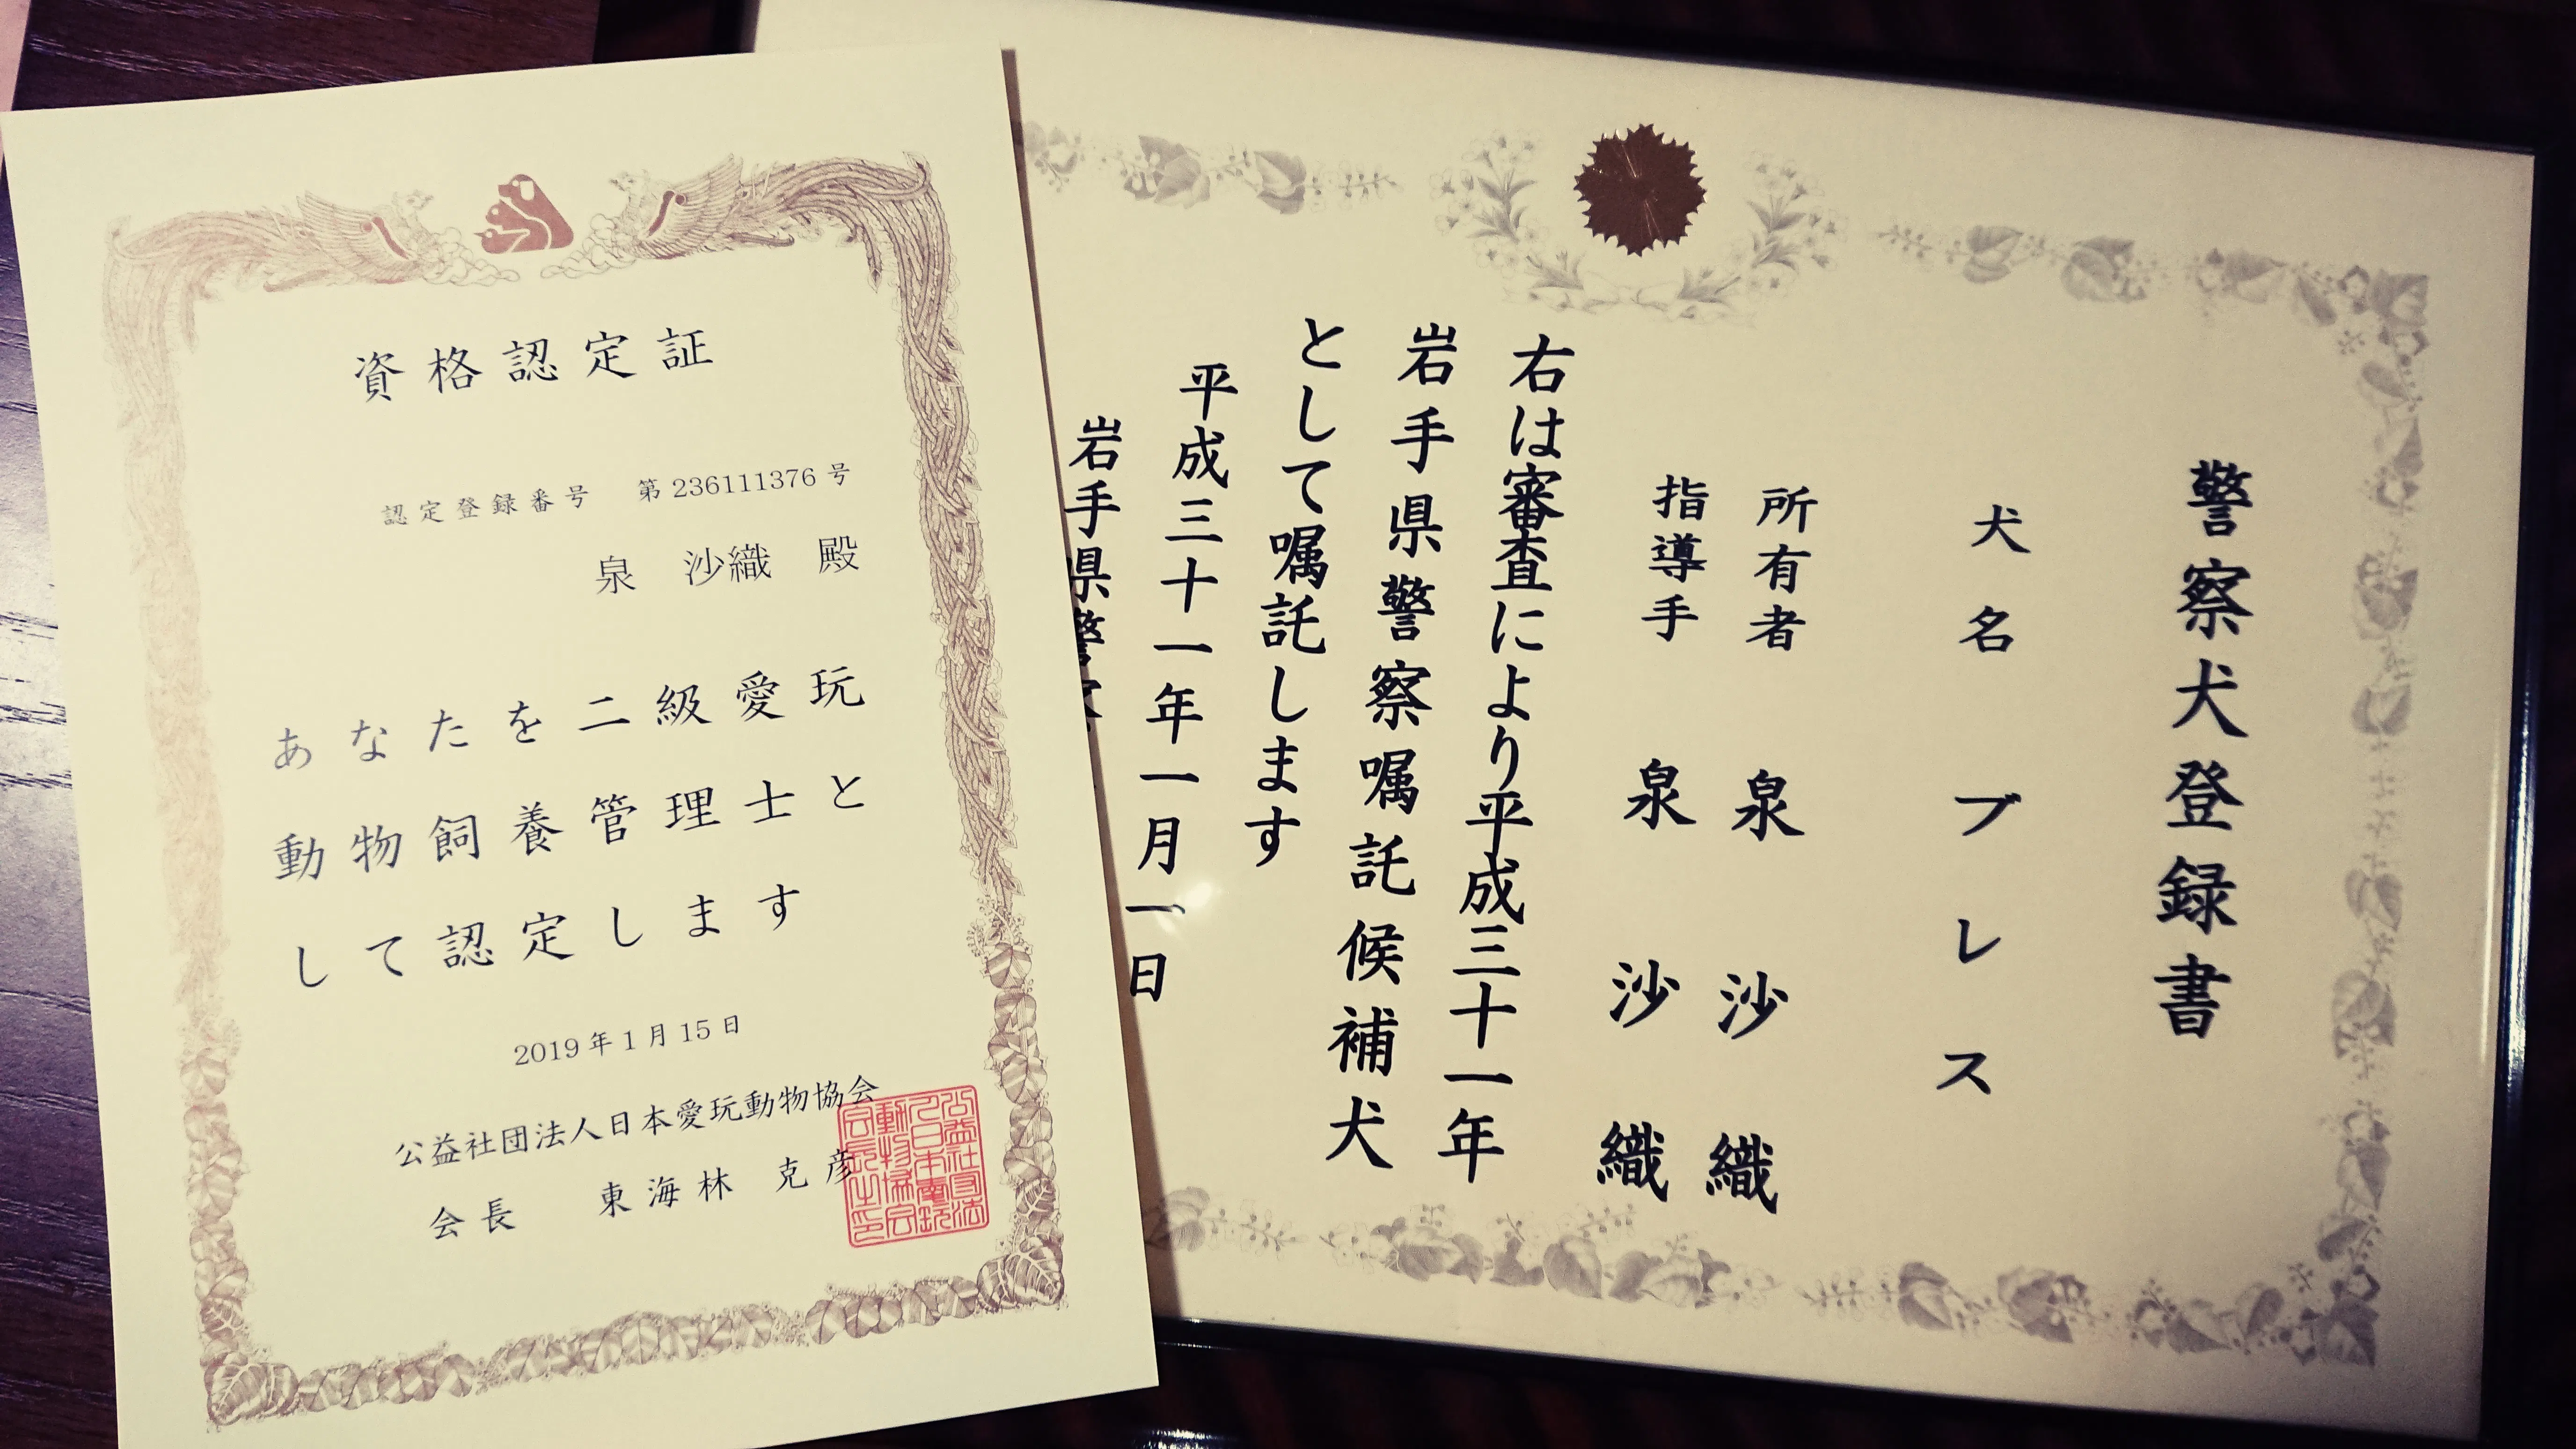 資格認定証
認定登録番号 第236111376号
泉 沙織 殿
あなたを二級愛玩
動物飼養管理士と
して認定します
2019年1月15日
公益社団法人日本愛玩動物協会
会長 東海林 克彦
警察犬登録書
犬名 ブレス
所有者 泉沙織
指導手 泉沙織
右は審査により平成三十一年
岩手県警察嘱託候補犬
として嘱託します
平成三十一年一月一日
岩手県警察